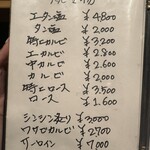 エータン塩 ¥4800
タン塩 ¥2000
特上カルビ ¥3200
上カルビ ¥2800
中カルビ ¥2600
カルビ ¥2000
特上ロース ¥3,500
ロース ¥1.600
シンシン ¥3000
ワサビカルビ ¥2700
サーロイン ¥7000